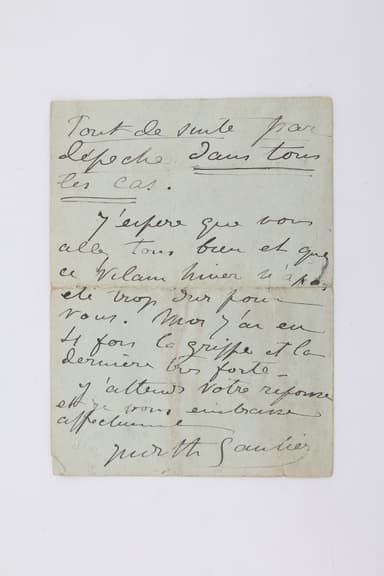 Tout de suite par
dépeche dans tous
les cas.
J'espere que vous
alle tous bien et que
ce vilain hiver n'a pas
été trop dur pour
vous. Moi j'ai eu
4 fois la grippe et la
derniere tres forte -
J'attends votre réponse
et je vous embrasse
affectueuse
Judith Gautier